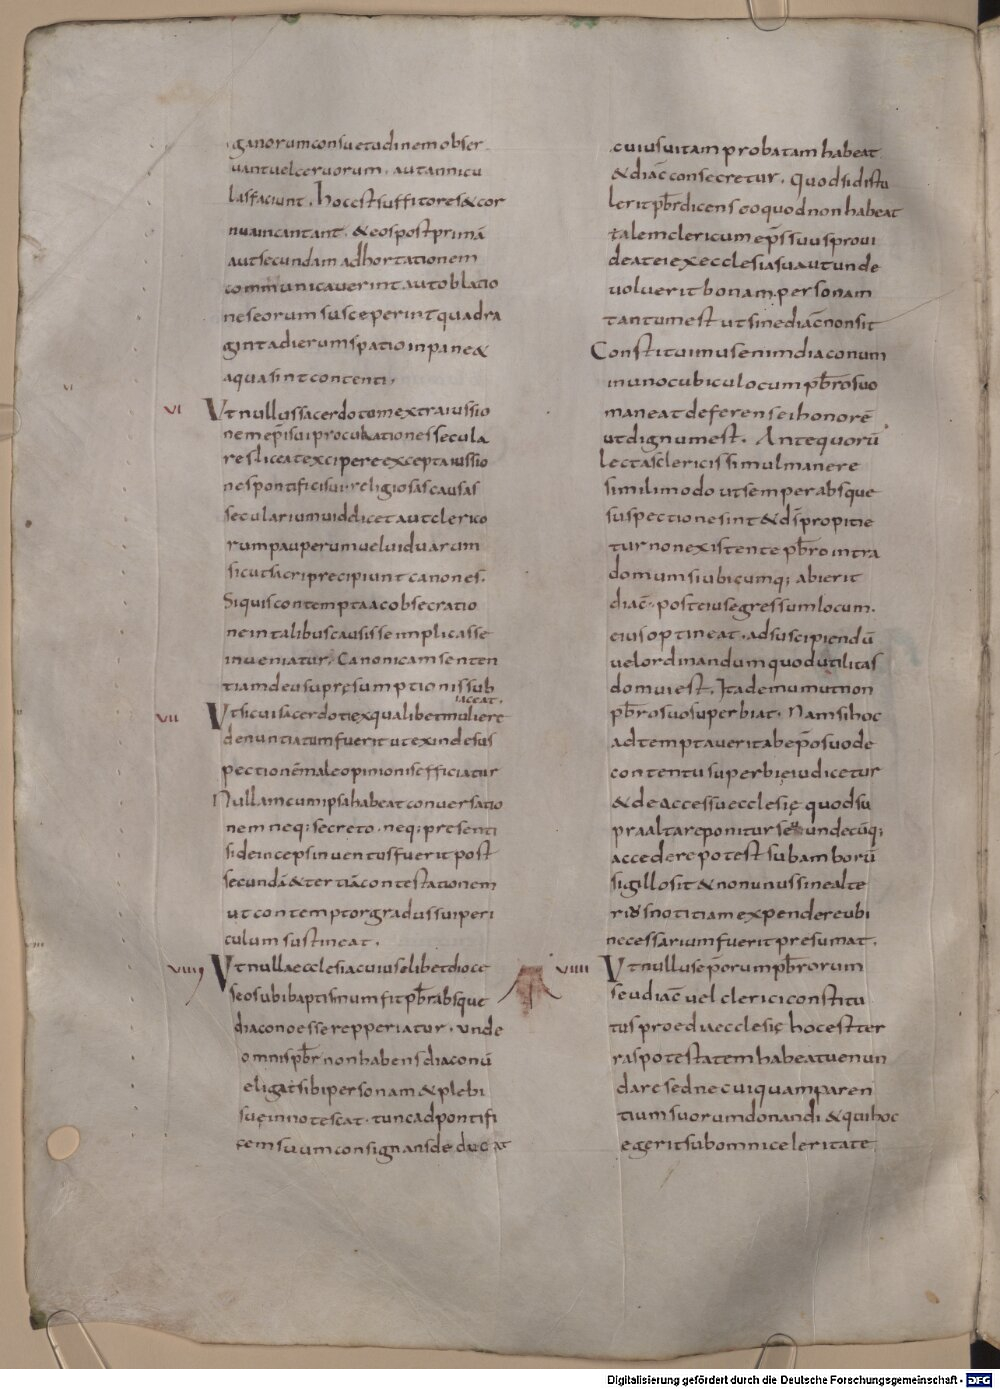 ganorum consuetudinem obser
uant uel ceruorum. aut annicu
las faciunt. hoc est suffitores & cor
nua incantant. & eos post primā
aut secundam adhortationem
communicauerint aut oblatio
nes eorum susceperint quadra
ginta dierum spatio in pane &
aqua sint contenti.
VI Ut nullus sacerdotum extra iussio
nem ep̄i sui procurationes secula
res liceat excipere excepta iussio
nes pontificis sui religiosas causas
secularium uiddicet aut clerico
rum pauperum uel uiduarum
sicut sacri precipiunt canones.
Si quis contempta ac obsecratio
ne in talibus causis se implicasse
inueniatur. Canonicam senten
tiam deusu pręsumptionis sub
iaceat.
VII Ut si cui sacerdoti ex qualibet muliere
denuntiatum fuerit ut exinde sus
pectionē male opinionis efficiatur
Nullam cum ipsa habeat conuersatio
nem neq; secreto. neq; presenti
si deinceps inuentus fuerit post
secundā & tertiā contestationem
ut contemptor gradus sui peri
culum sustineat.
VIII Ut nulla ecclesia cuiuslibet dioce
seos ubi baptismum fit pb̄r absque
diacono esse repperiatur. unde
omnis pb̄r non habens diaconū
eligat sibi personam & plebi
suę innotescat. tunc ad pontifi
cem suum consignans deducat
cuius uitam probatam habeat
& diac̄ consecretur. Quod si distu
lerit pb̄r dicens eo quod non habeat
talem clericum ep̄s suus proui
deat ei ex ecclesia sua aut unde
uoluerit bonam personam
tantum est ut sine diac̄ non sit
Constituimus enim diaconum
in uno cubiculo cum pb̄ro suo
maneat deferens ei honorē
ut dignum est. Ante quorū
lectas clericis simul manere
simili modo ut semper absque
suspectione sint & d̄s propitie
tur non existente pb̄ro intra
domum si ubicumq; abierit
diac̄. post eius egressum locum.
eius optineat. ad suscipiendū
uel ordinandum quod utilitas
domui est. Ita demum ut non
pb̄ro suo superbiat. Nam si hoc
adtemptauerit ab ep̄o suo de
contentu superbię iudicetur
& de accessu ecclesię quod su
pra altare ponitur seu undecūq;
accedere potest sub amborū
sigillo sit & non unus sine alte
rius notitiam expendere ubi
necessarium fuerit presumat.
VIIII Ut nullus ep̄orum pb̄rorum
seu diac̄ uel clerici constitu
tus pro edua ecclesię hoc est ter
ras potestatem habeat uenun
dare sed ne cuiquam paren
tium suorum donandi & qui hoc
egerit sub omni celeritate
Digitalisierung gefördert durch die Deutsche Forschungsgemeinschaft - DFG